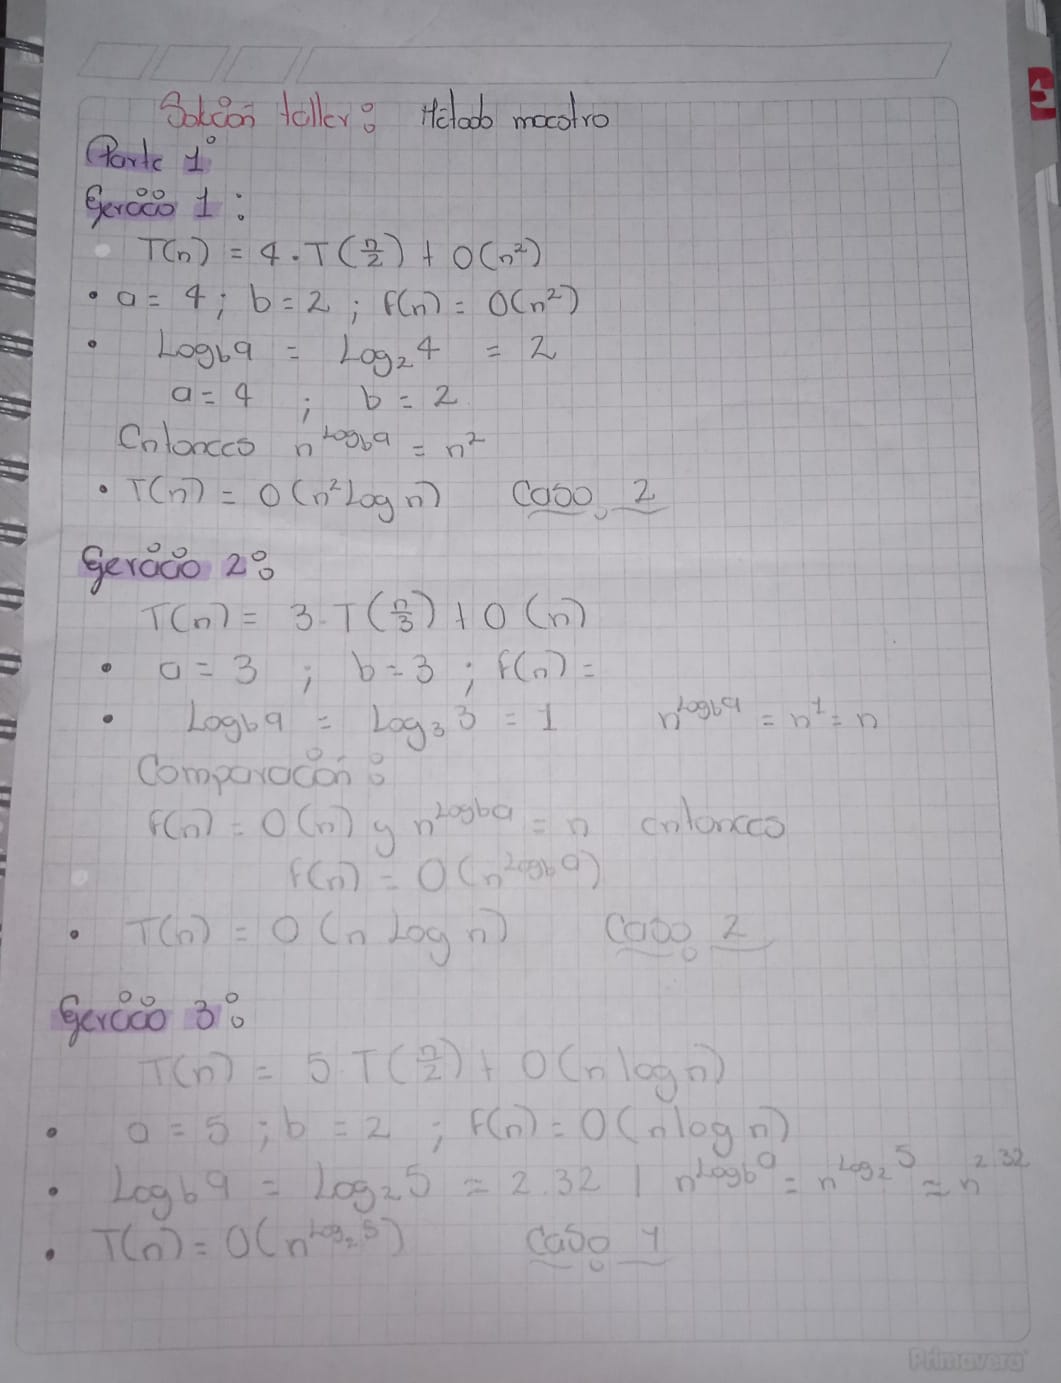 Solución taller: Método maestro
Parte 1°
Ejercicio 1:
T(n) = 4 · T(n/2) + O(n²)
• a = 4 ; b = 2 ; f(n) = O(n²)
• Log_b a = Log₂ 4 = 2
a = 4 ; b = 2
Entonces n^(Log_b a) = n²
• T(n) = O(n² Log n) Caso 2
Ejercicio 2:
T(n) = 3 · T(n/3) + O(n)
• a = 3 ; b = 3 ; f(n) =
• Log_b a = Log₃ 3 = 1 n^(Log_b a) = n¹ = n
Comparación:
f(n) = O(n) y n^(Log_b a) = n entonces
f(n) = O(n^(Log_b a))
• T(n) = O(n Log n) Caso 2
Ejercicio 3:
T(n) = 5 · T(n/2) + O(n log n)
• a = 5 ; b = 2 ; f(n) = O(n log n)
• Log_b a = Log₂ 5 = 2.32 | n^(Log_b a) = n^(Log₂ 5) ≈ n^2.32
• T(n) = O(n^(Log₂ 5)) Caso 1
Primavera